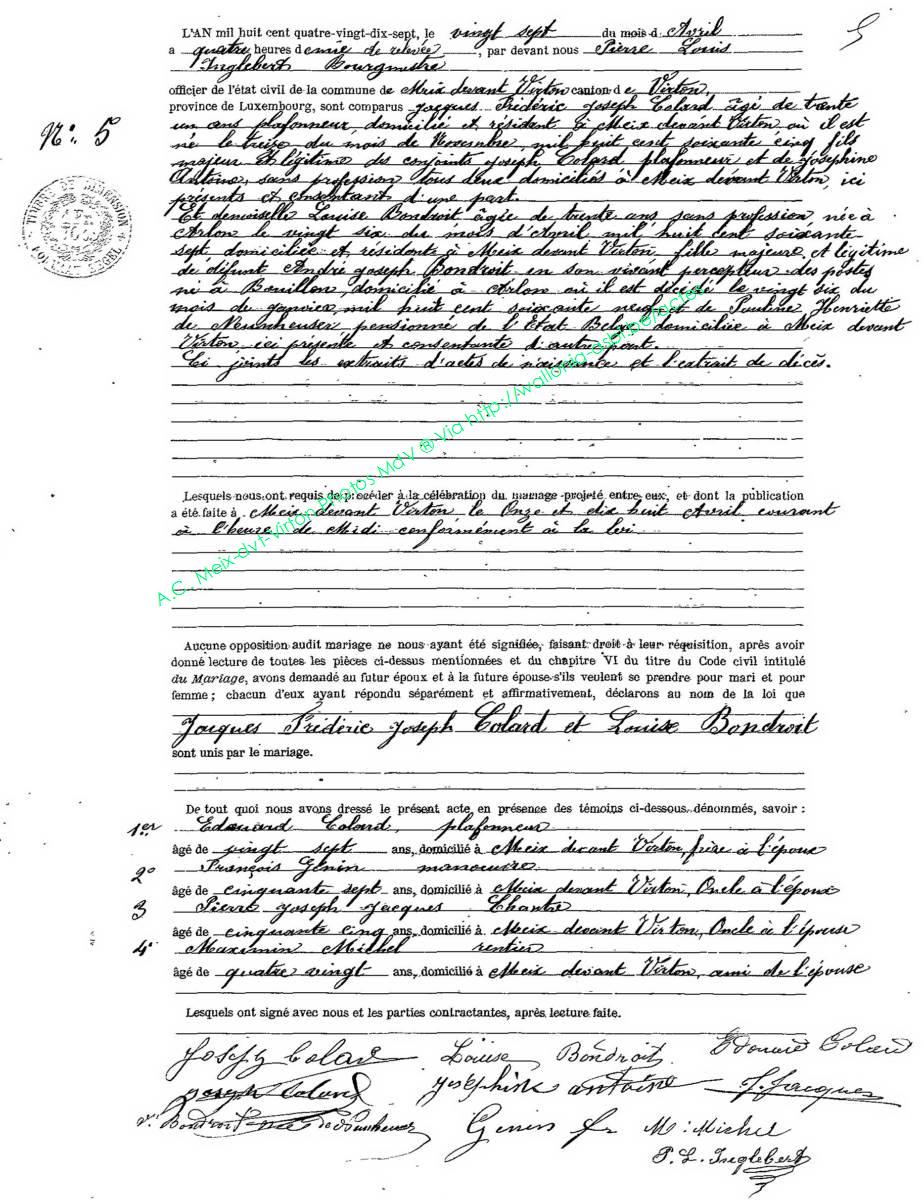 5
L'AN mil huit cent quatre-vingt-dix-sept, le vingt sept du mois d Avril
a quatre heures demie de relevée, par devant nous Pierre Louis
Inglebert Bourgmestre
officier de l'état civil de la commune de Meix devant Virton canton d e Virton,
province de Luxembourg, sont comparus Jacques Frédéric Joseph Colard âgé de trente
N° 5
un ans plafonneur, domicilié et résidant à Meix devant Virton où il est
né le treize du mois de Novembre, mil huit cent soixante cinq fils
majeur et légitime des conjoints Joseph Colard plafonneur et de Joséphine
Antoine, sans profession tous deux domiciliés à Meix devant Virton, ici
présents et consentant d'une part.
TIMBRE DE DIMENSION
Et demoiselle Louise Bondroit âgée de trente ans sans profession née à
Arlon le vingt six du mois d'Avril mil huit cent soixante-
sept domiciliée et résidant à Meix devant Virton, fille majeure et légitime
de défunt André Joseph Bondroit en son vivant percepteur des postes
né à Bouillon, domicilié à Arlon où il est décédé le vingt six du
mois de janvier mil huit cent soixante neuf et de Pauline Henriette
de Neunheuser pensionné de l'Etat Belge domiciliée à Meix devant
Virton ici présente et consentante d'autre part.
Ci joints les extraits d'actes de naissance et l'extrait de décès.
A.C. Meix-dvt-Virton Photos MdV ® Via http://wallonia-asbl.be/actes
Lesquels nous ont requis de procéder à la célébration du mariage projeté entre eux, et dont la publication
a été faite à Meix devant Virton le Onze et dix huit Avril courant
à l'heure de Midi conformément à la loi
Aucune opposition audit mariage ne nous ayant été signifiée, faisant droit à leur réquisition, après avoir
donné lecture de toutes les pièces ci-dessus mentionnées et du chapitre VI du titre du Code civil intitulé
du Mariage, avons demandé au futur époux et à la future épouse s'ils veulent se prendre pour mari et pour
femme ; chacun d'eux ayant répondu séparément et affirmativement, déclarons au nom de la loi que
Jacques Frédéric Joseph Colard et Louise Bondroit
sont unis par le mariage.
De tout quoi nous avons dressé le présent acte, en présence des témoins ci-dessous dénommés, savoir :
1er Edouard Colard, plafonneur
âgé de vingt sept ans, domicilié à Meix devant Virton, frère à l'époux
2° François Génin manoeuvre
âgé de cinquante sept ans, domicilié à Meix devant Virton, Oncle à l'époux
3 Pierre Joseph Jacques Chantre
âgé de cinquante cinq ans, domicilié à Meix devant Virton, Oncle à l'épouse
4° Maximin Michel rentier
âgé de quatre vingt ans, domicilié à Meix devant Virton, ami de l'épouse
Lesquels ont signé avec nous et les parties contractantes, après lecture faite.
Joseph Colard Louise Bondroit Edouard Colard
Joseph Colard Joséphine antoine J. Jacques
Ve Bondroit née de Neunheuser Genin fr M. Michel
P. L. Inglebert